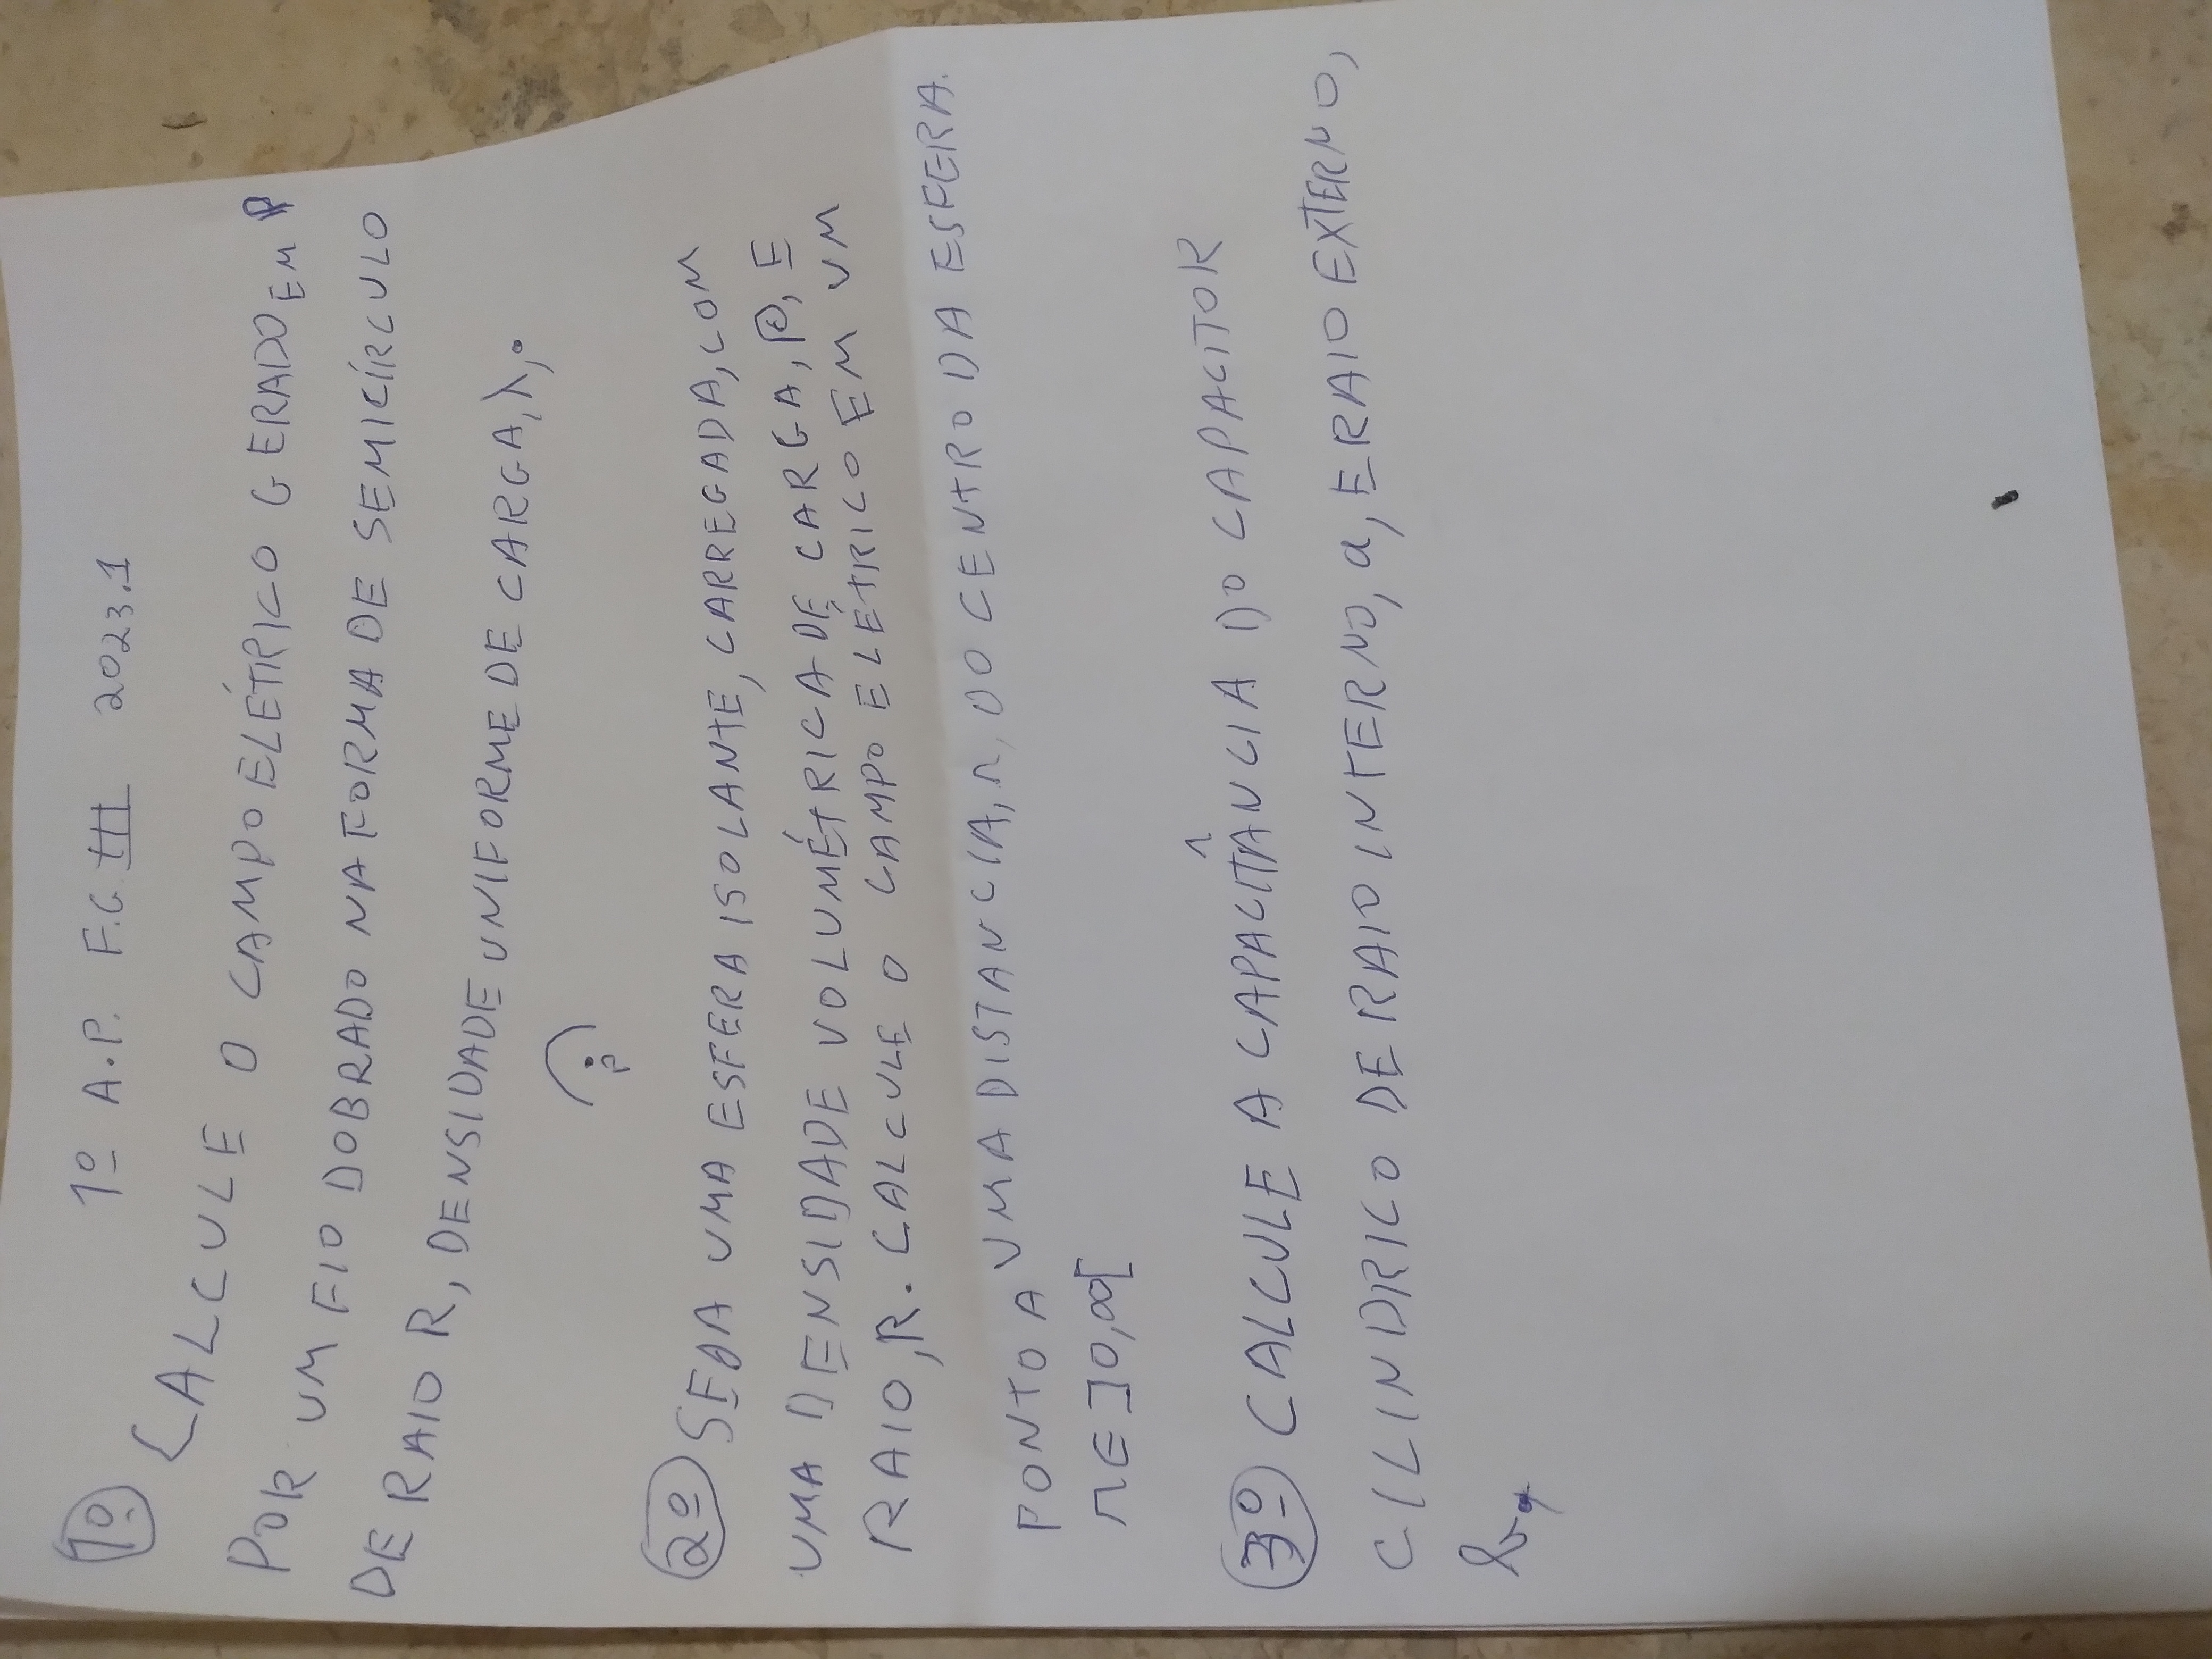 1º A.P. F.G III 2023.1
1º
CALCULE O CAMPO ELÉTRICO GERADO EM P
POR UM FIO DOBRADO NA FORMA DE SEMICÍRCULO
DE RAIO R, DENSIDADE UNIFORME DE CARGA, λ,.
P
2º SEJA UMA ESFERA ISOLANTE, CARREGADA, COM
UMA DENSIDADE VOLUMÉTRICA DE CARGA, ρ, E
RAIO, R. CALCULE O CAMPO ELÉTRICO EM UM
PONTO A UMA DISTANCIA, r, DO CENTRO DA ESFERA.
r ∈ ]0,∞[
3º CALCULE A CAPACITÂNCIA DO CAPACITOR
CILINDRICO DE RAIO INTERNO, a, E RAIO EXTERNO,
b.